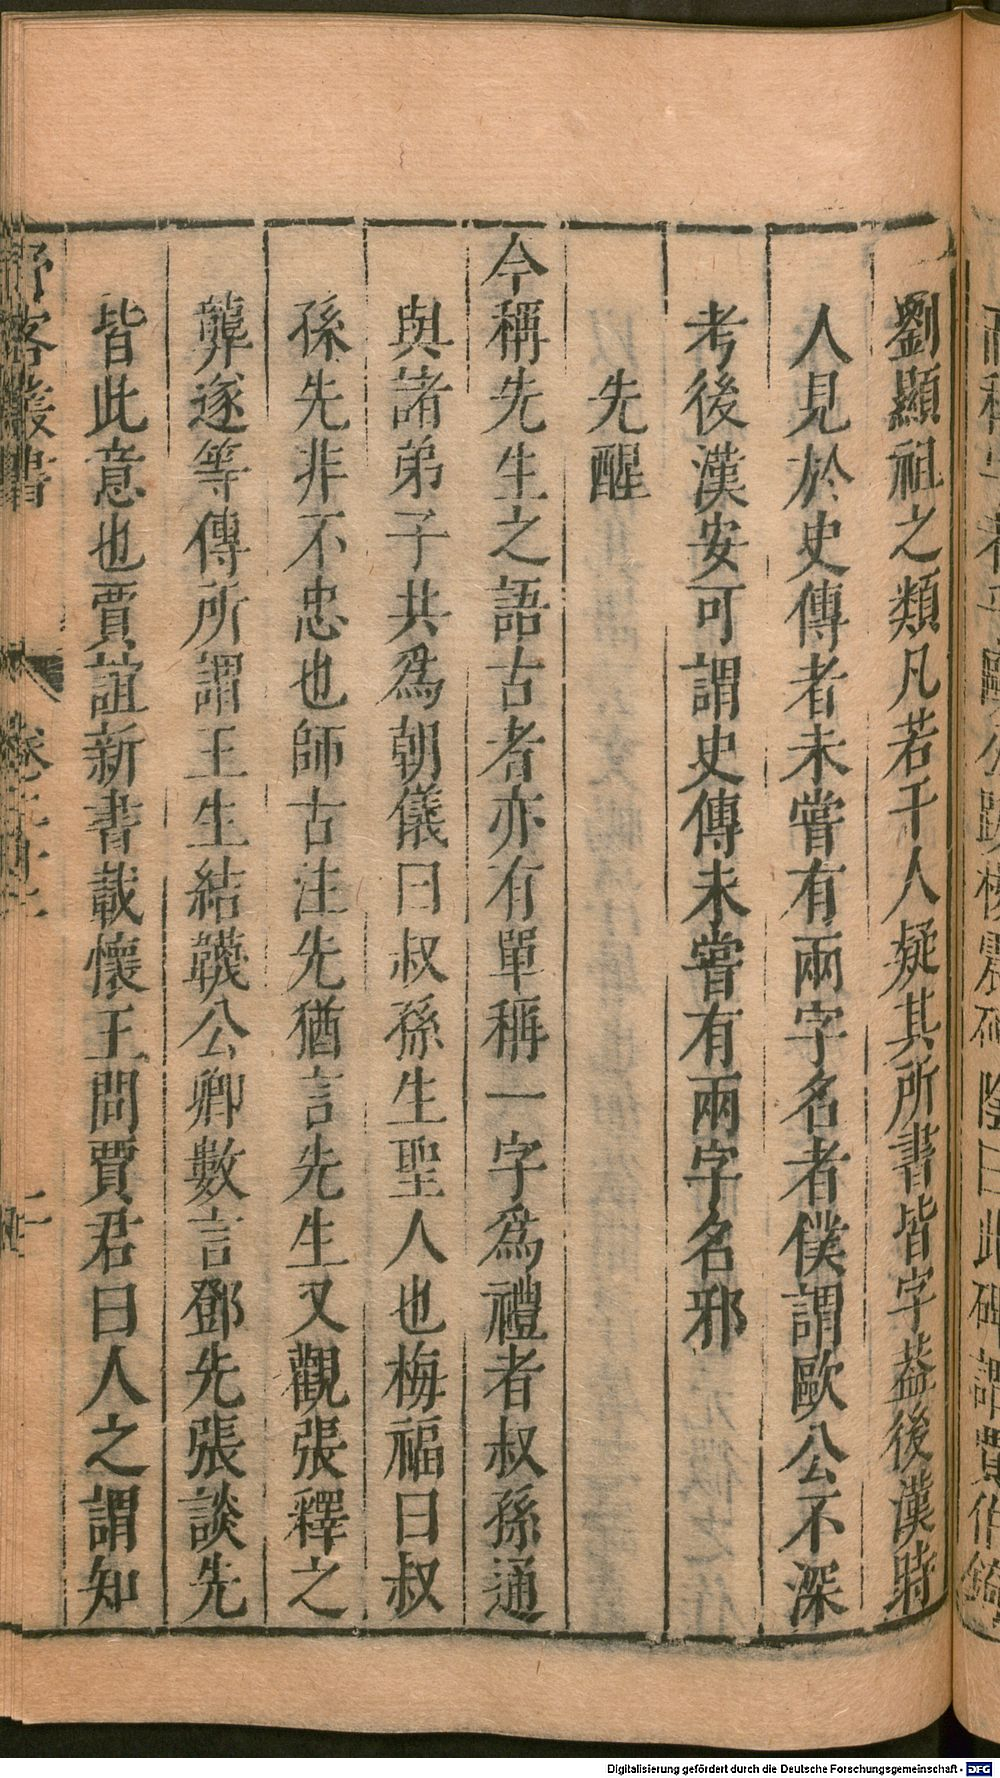 劉顯祖之類凡若干人疑其所書皆字葢後漢時
人見於史傳者未嘗有兩字名者僕謂歐公不深
考後漢安可謂史傳未嘗有兩字名邪
先醒
今稱先生之語古者亦有單稱一字爲禮者叔孫通
與諸弟子共爲朝儀曰叔孫生聖人也梅福曰叔
孫先非不忠也師古注先猶言先生又觀張釋之
龔遂等傳所謂王生結韈公卿數言鄧先張談先
皆此意也賈誼新書載懷王問賈君曰人之謂知
野客叢書
Digitalisierung gefördert durch die Deutsche Forschungsgemeinschaft - DFG